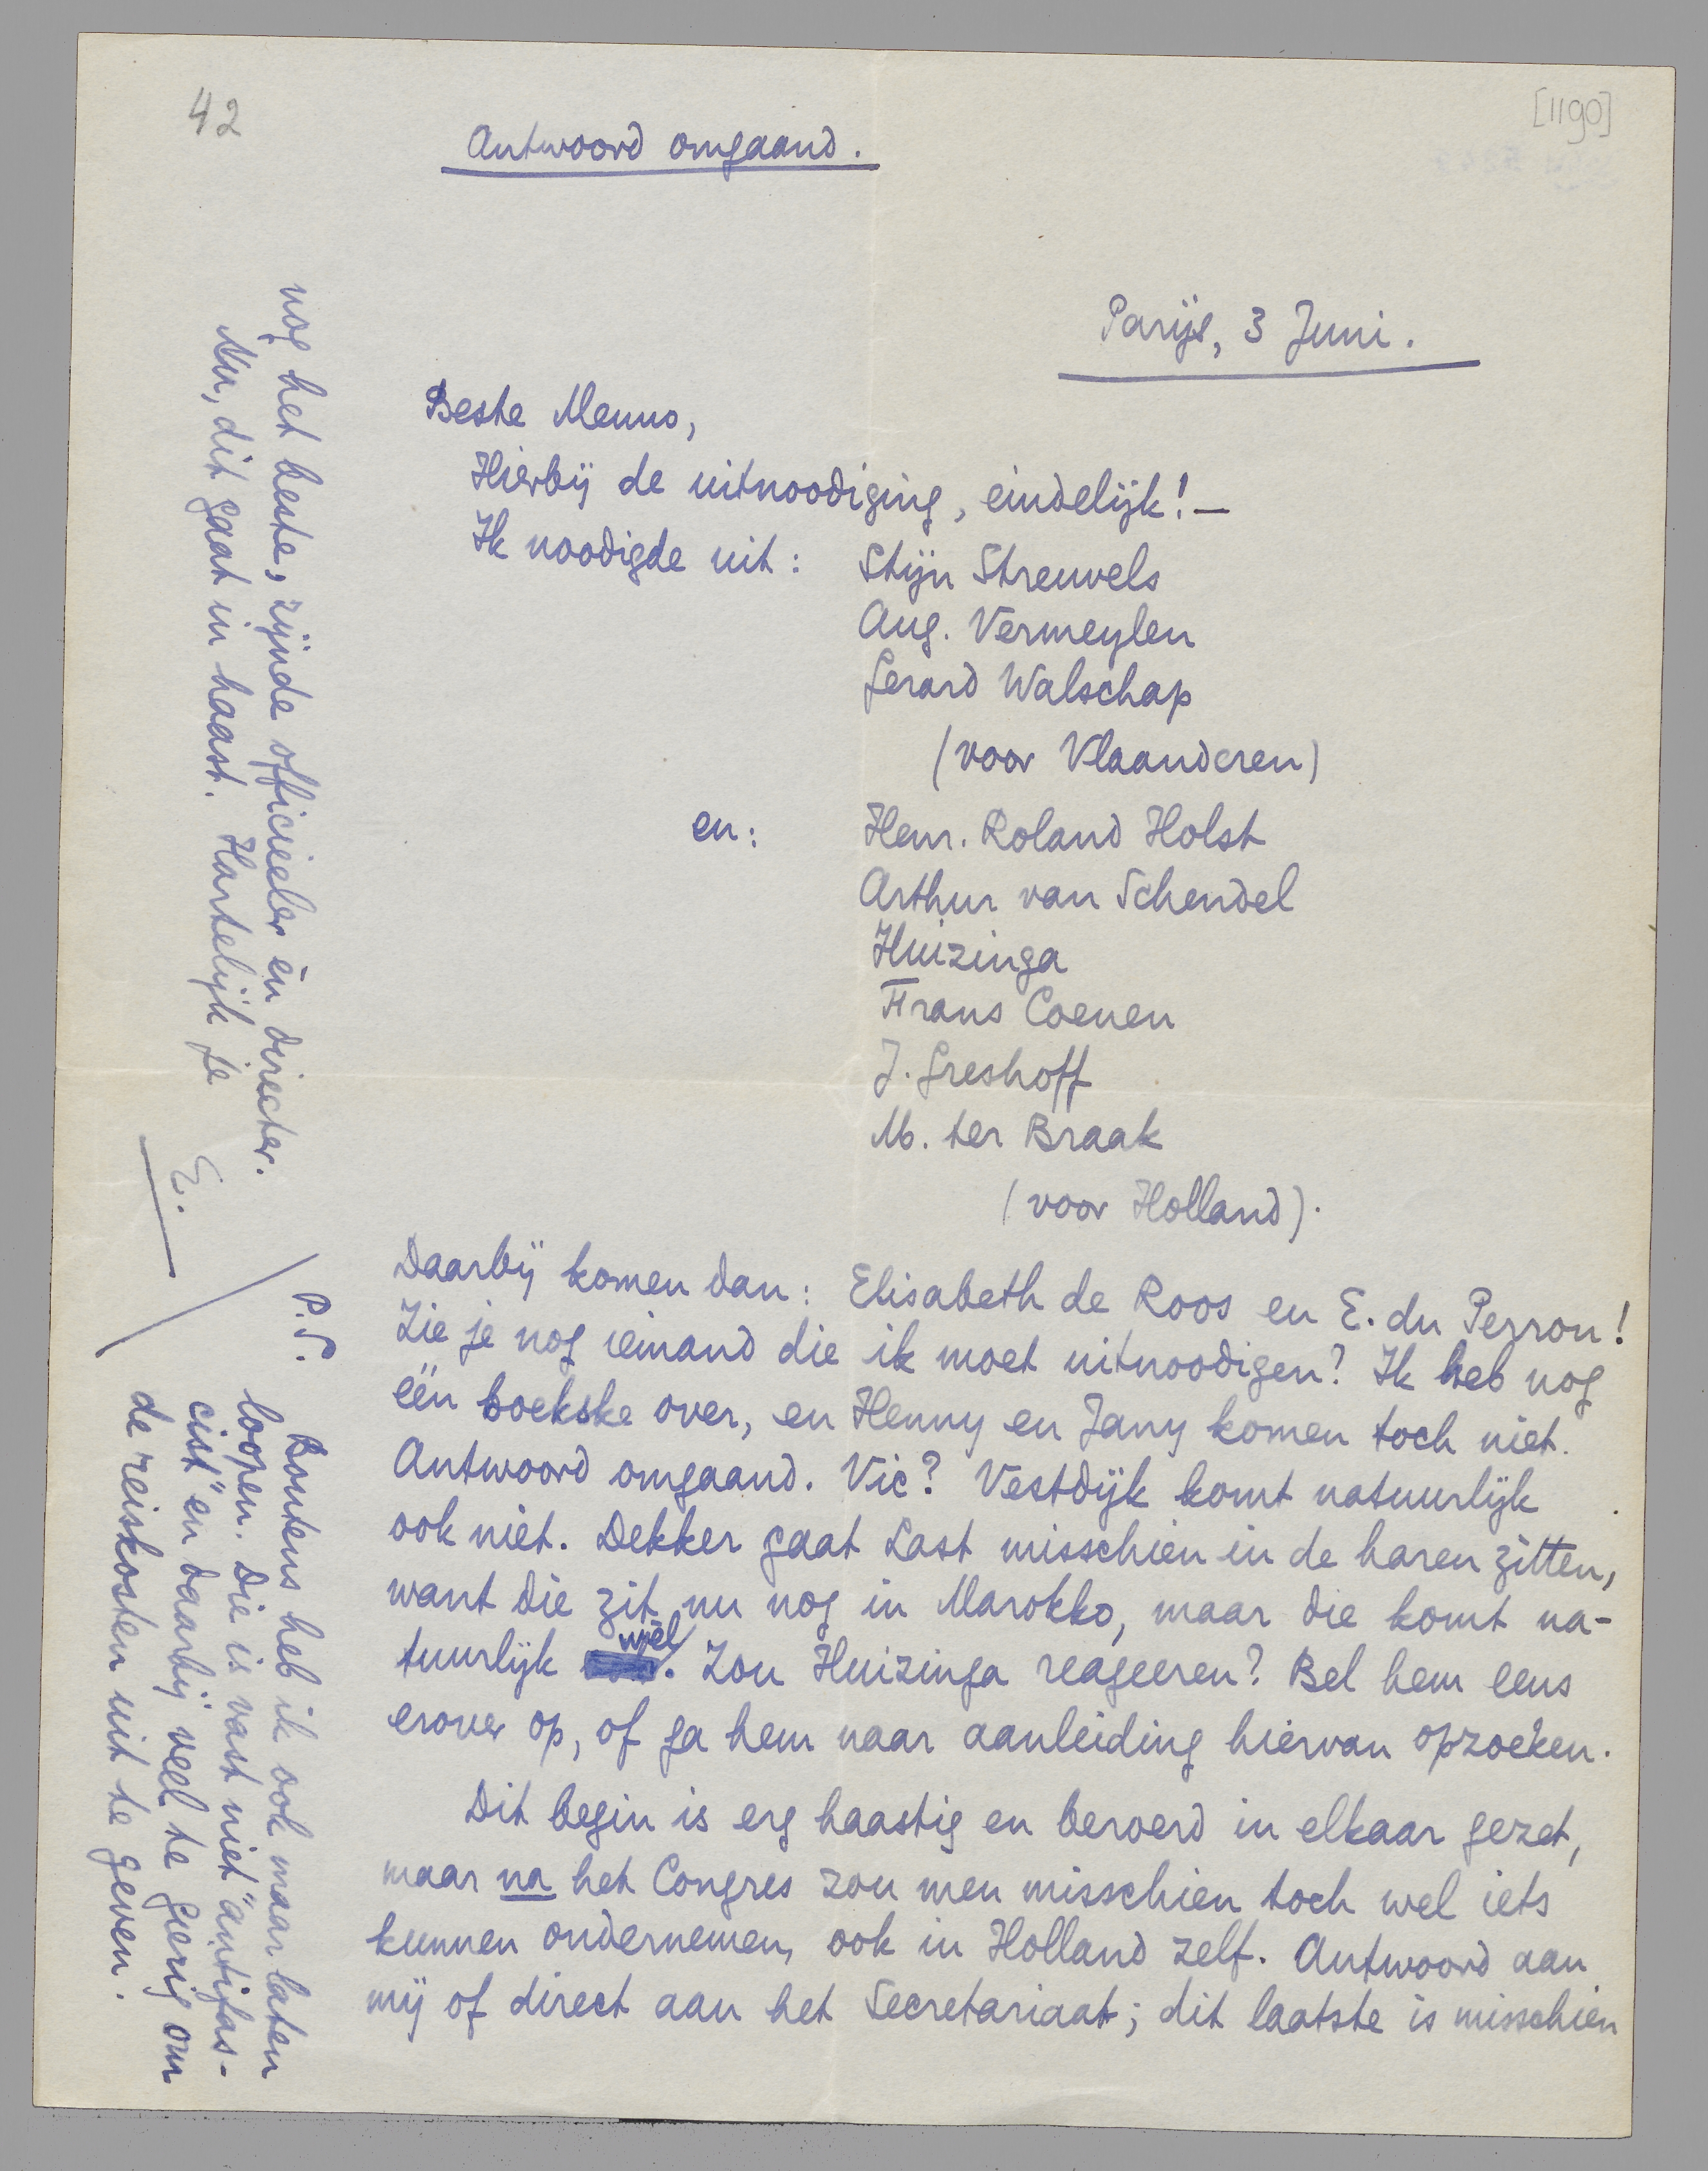 42
[1190]
Antwoord omgaand.
Parijs, 3 Juni.
Beste Menno,
Hierbij de uitnoodiging, eindelijk! —
Ik noodigde uit: Stijn Streuvels
Aug. Vermeylen
Gerard Walschap
(voor Vlaanderen)
en: Henr. Roland Holst
Arthur van Schendel
Huizinga
Frans Coenen
J. Greshoff
M. ter Braak
(voor Holland).
Daarbij komen dan: Elisabeth de Roos en E. du Perron!
Zie je nog iemand die ik moet uitnoodigen? Ik heb nog
één boekske over, en Henny en Jany komen toch niet.
Antwoord omgaand. Vic? Vestdijk komt natuurlijk
ook niet. Dekker gaat Last misschien in de haren zitten,
want die zit nu nog in Marokko, maar die komt na-
tuurlijk wèl. Zou Huizinga reageeren? Bel hem eens
erover op, of ga hem naar aanleiding hiervan opzoeken.
Dit begin is erg haastig en beroerd in elkaar gezet,
maar na het Congres zou men misschien toch wel iets
kunnen ondernemen, ook in Holland zelf. Antwoord aan
mij of direct aan het Secretariaat; dit laatste is misschien
nog het beste, zijnde officieeler èn directer.
Nu, dit gaat in haast. Hartelijk je
E.
P.S.
Boutens heb ik ook maar laten
loopen. Die is vast niet "antifas-
cist" en daarbij veel te gierig om
de reiskosten uit te geven.